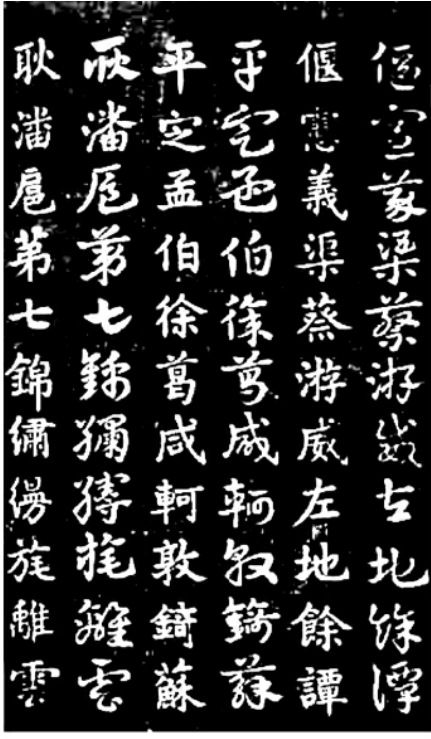 偃憲義渠蔡游威左地餘譚
偃憲義渠蔡游威左地餘譚
平定孟伯徐葛咸軻敦錡蘇
平定孟伯徐葛咸軻敦錡蘇
耿潘扈第七錦繡縵旄離雲
耿潘扈第七錦繡縵旄離雲